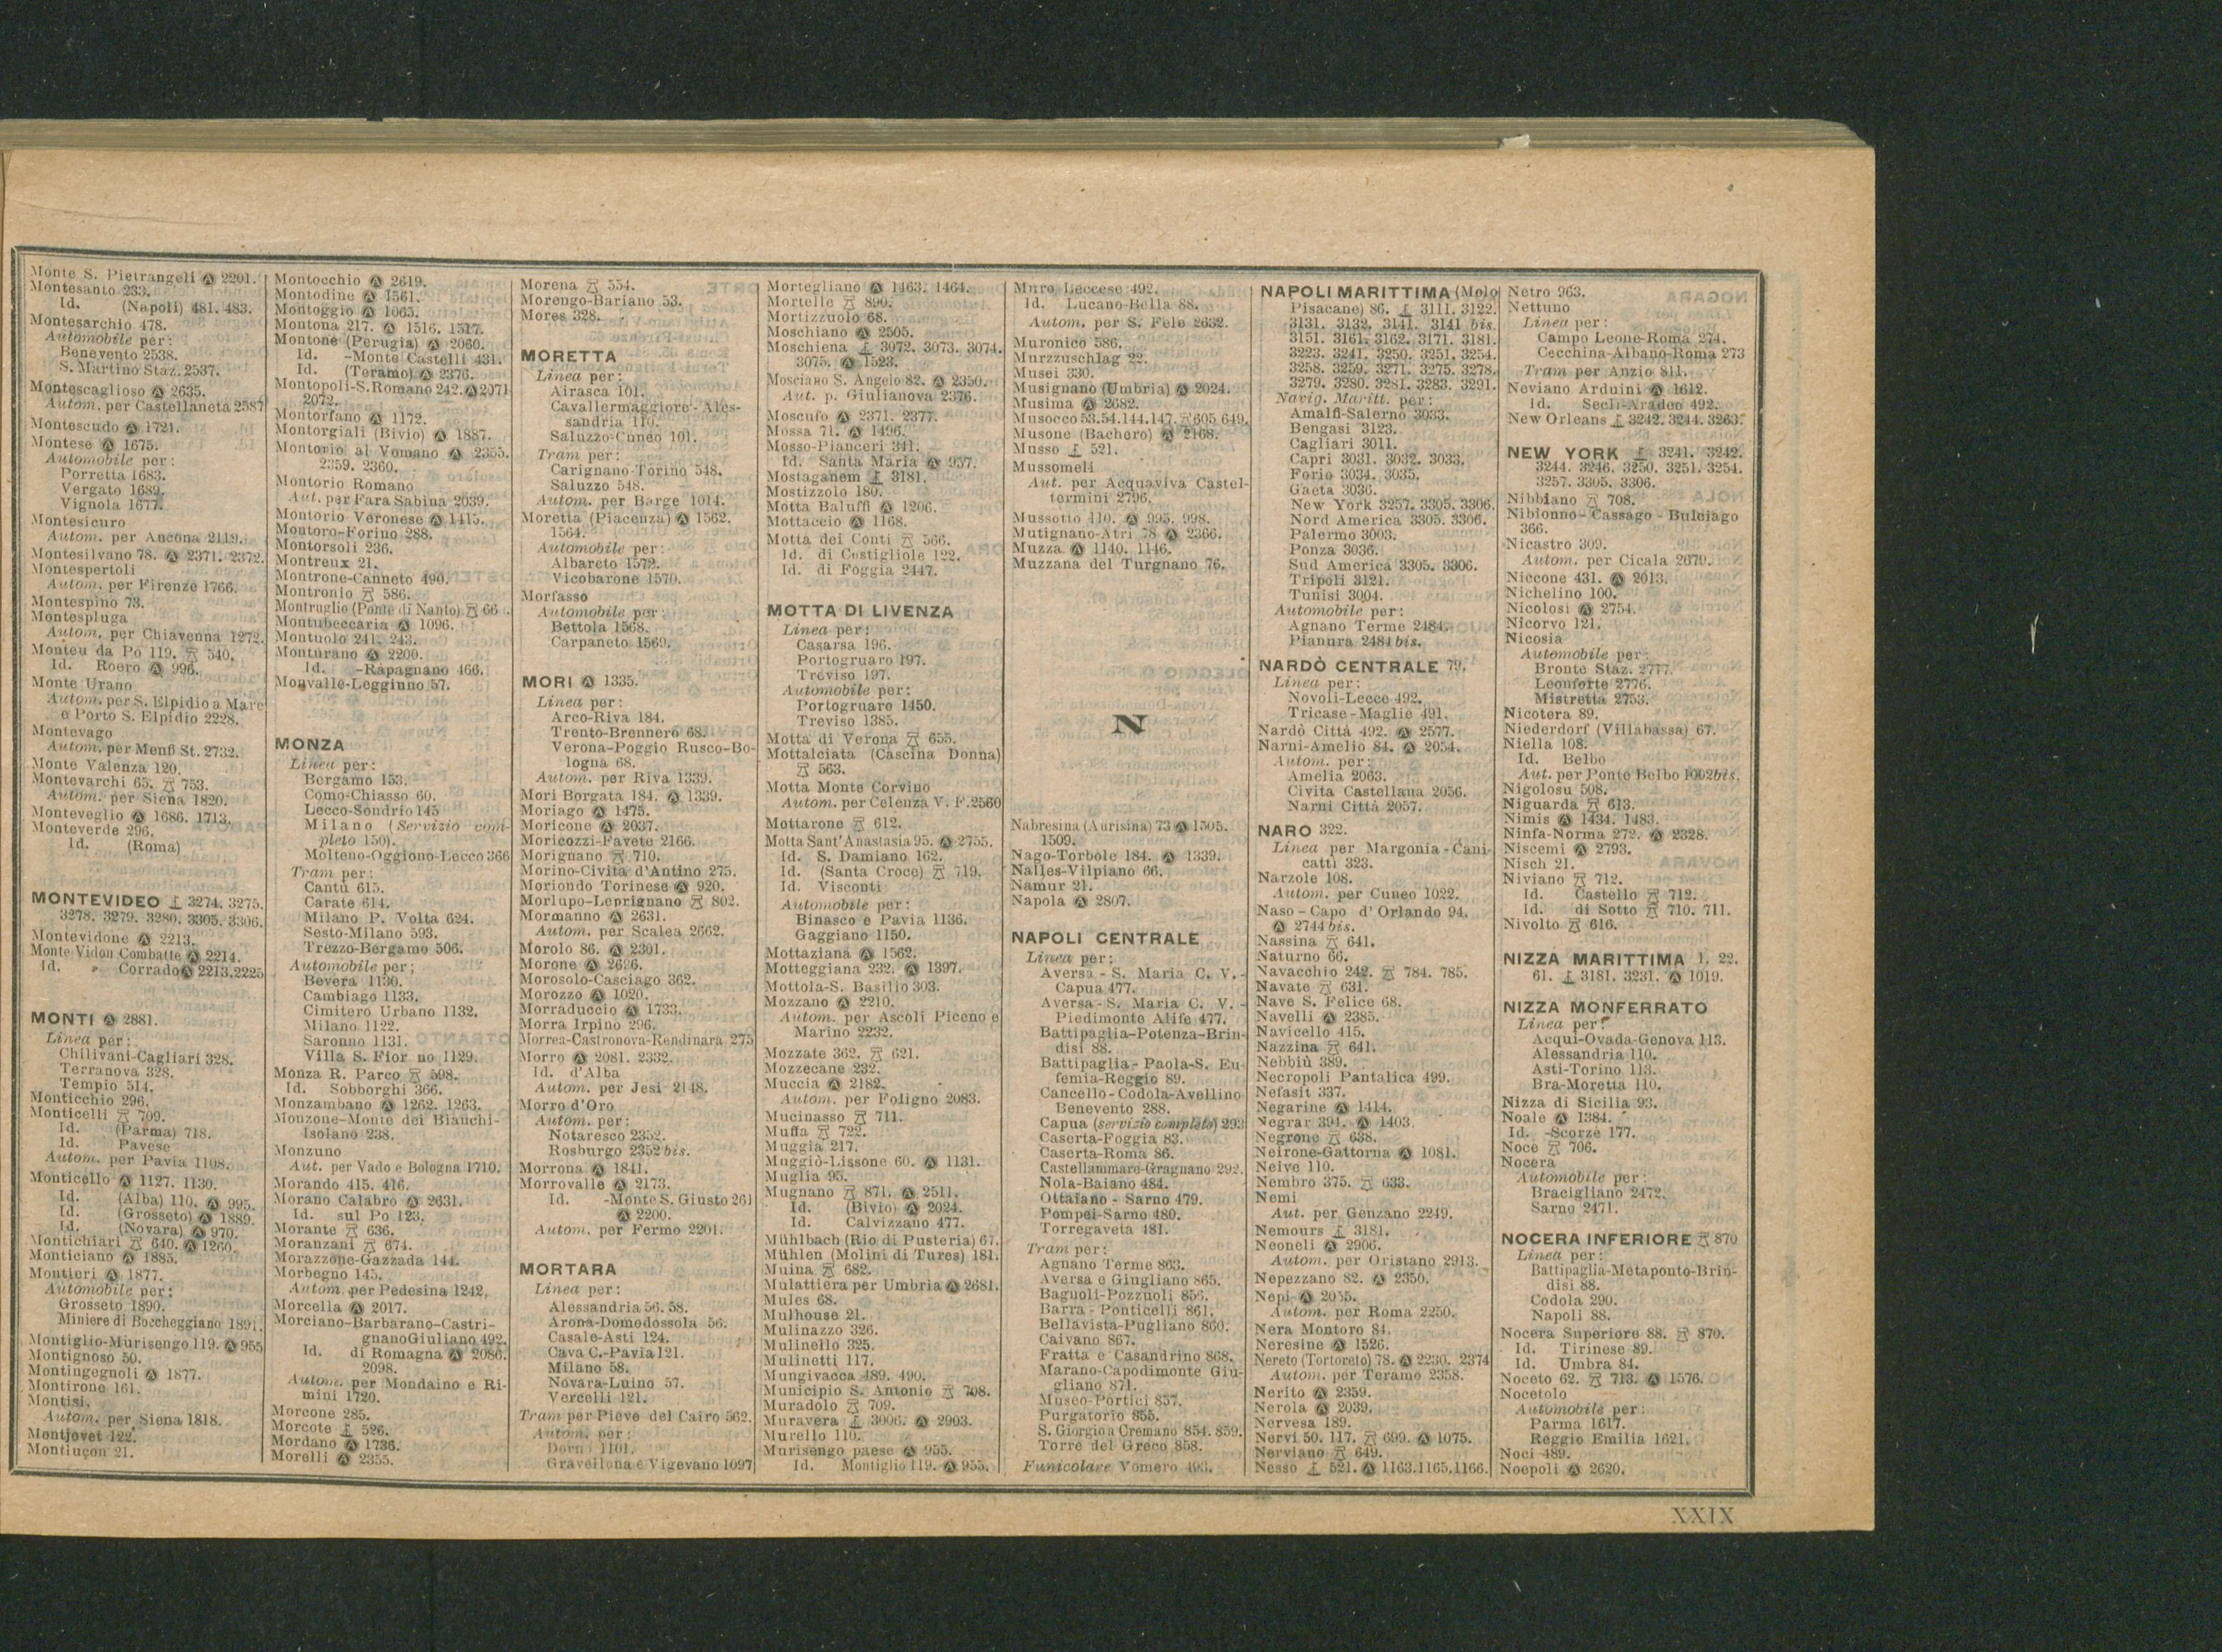 Monte S. Pietrangeli Ⓐ 2201.
Montesanto 233.
Id. (Napoli) 481. 483.
Montesarchio 478.
Automobile per:
Benevento 2538.
S. Martino Staz. 2537.
Montescaglioso Ⓐ 2635.
Autom. per Castellaneta 2587
Montescudo Ⓐ 1721.
Montese Ⓐ 1675.
Automobile per:
Porretta 1683.
Vergato 1689.
Vignola 1677.
Montesicuro
Autom. per Ancona 2119.
Montesilvano 78. Ⓐ 2371. 2372.
Montespertoli
Autom. per Firenze 1766.
Montespino 73.
Montespluga
Autom. per Chiavenna 1272.
Monteu da Po 119. 540.
Id. Roero Ⓐ 996.
Monte Urano
Autom. per S. Elpidio a Mare
e Porto S. Elpidio 2228.
Montevago
Autom. per Menfi St. 2732.
Monte Valenza 120.
Montevarchi 65. 753.
Autom. per Siena 1820.
Monteveglio Ⓐ 1686. 1713.
Monteverde 296.
Id. (Roma)
MONTEVIDEO 3274. 3275.
3278. 3279. 3280. 3305. 3306.
Montevidone Ⓐ 2213.
Monte Vidon Combatte Ⓐ 2214.
Id. » Corrado Ⓐ 2213.2225
MONTI Ⓐ 2881.
Linea per:
Chilivani-Cagliari 328.
Terranova 328.
Tempio 514.
Monticchio 296.
Monticelli 709.
Id. (Parma) 718.
Id. Pavese
Autom. per Pavia 1108.
Monticello Ⓐ 1127. 1130.
Id. (Alba) 110. Ⓐ 995.
Id. (Grosseto) Ⓐ 1889.
Id. (Novara) Ⓐ 970.
Montichiari 640. Ⓐ 1260.
Monticiano Ⓐ 1885.
Montieri Ⓐ 1877.
Automobile per:
Grosseto 1890.
Miniere di Boccheggiano 1891.
Montiglio-Murisengo 119. Ⓐ 955
Montignoso 50.
Montingegnoli Ⓐ 1877.
Montirone 161.
Montisi.
Autom. per Siena 1818.
Montjovet 122.
Montluçon 21.
Montocchio Ⓐ 2619.
Montodine Ⓐ 1561.
Montoggio Ⓐ 1065.
Montona 217. Ⓐ 1516. 1517.
Montone (Perugia) Ⓐ 2060.
Id. -Monte Castelli 431.
Id. (Teramo) Ⓐ 2376.
Montopoli-S.Romano 242. Ⓐ 2071
2072.
Montorfano Ⓐ 1172.
Montorgiali (Bivio) Ⓐ 1887.
Montorio al Vomano Ⓐ 2355.
2359. 2360.
Montorio Romano
Aut. per Fara Sabina 2039.
Montorio Veronese Ⓐ 1415.
Montoro-Forino 288.
Montorsoli 236.
Montreux 21.
Montrone-Canneto 490.
Montronio 586.
Montruglio (Ponte di Nanto) 66
Montubeccaria Ⓐ 1096.
Montuolo 241. 243.
Monturano Ⓐ 2200.
Id. -Rapagnano 466.
Monvalle-Leggiuno 57.
MONZA
Linea per:
Bergamo 153.
Como-Chiasso 60.
Lecco-Sondrio 145
Milano (Servizio com-
pleto 150).
Molteno-Oggiono-Lecco 366
Tram per:
Cantù 615.
Carate 614.
Milano P. Volta 624.
Sesto-Milano 593.
Trezzo-Bergamo 506.
Automobile per:
Bevera 1130.
Cambiago 1133.
Cimitero Urbano 1132.
Milano 1122.
Saronno 1131.
Villa S. Fior no 1129.
Monza R. Parco 598.
Id. Sobborghi 366.
Monzambano Ⓐ 1262. 1263.
Monzone-Monte dei Bianchi-
Isolano 238.
Monzuno
Aut. per Vado e Bologna 1710.
Morando 415. 416.
Morano Calabro Ⓐ 2631.
Id. sul Po 123.
Morante 636.
Moranzani 674.
Morazzone-Gazzada 144.
Morbegno 145.
Autom. per Pedesina 1242.
Morcella Ⓐ 2017.
Morciano-Barbarano-Castri-
gnano Giuliano 492.
Id. di Romagna Ⓐ 2086.
2098.
Autom. per Mondaino e Ri-
mini 1720.
Morcone 285.
Morcote 526.
Mordano Ⓐ 1736.
Morelli Ⓐ 2355.
Morena 554.
Morengo-Bariano 53.
Mores 328.
MORETTA
Linea per:
Airasca 101.
Cavallermaggiore-Ales-
sandria 110.
Saluzzo-Cuneo 101.
Tram per:
Carignano-Torino 548.
Saluzzo 548.
Autom. per Barge 1014.
Moretta (Piacenza) Ⓐ 1562.
1564.
Automobile per:
Albareto 1572.
Vicobarone 1570.
Morfasso
Automobile per:
Bettola 1568.
Carpaneto 1569.
MORI Ⓐ 1335.
Linea per:
Arco-Riva 184.
Trento-Brennero 68.
Verona-Poggio Rusco-Bo-
logna 68.
Autom. per Riva 1339.
Mori Borgata 184. Ⓐ 1339.
Moriago Ⓐ 1475.
Moricone Ⓐ 2037.
Moricozzi-Favete 2166.
Morignano 710.
Morino-Civita d'Antino 275.
Moriondo Torinese Ⓐ 920.
Morlupo-Leprignano 802.
Mormanno Ⓐ 2631.
Autom. per Scalea 2662.
Morolo 86. Ⓐ 2301.
Morone Ⓐ
Morosolo-Casciago 362.
Morozzo Ⓐ 1020.
Morraduccio Ⓐ 1733.
Morra Irpino 296.
Morrea-Castronova-Rendinara 275
Morro Ⓐ 2081. 2332.
Id. d'Alba
Autom. per Jesi 2148.
Morro d'Oro
Autom. per:
Notaresco 2352.
Rosburgo 2352 bis.
Morrona Ⓐ 1841.
Morrovalle Ⓐ 2173.
Id. -Monte S. Giusto 261
Ⓐ 2200.
Autom. per Fermo 2201.
MORTARA
Linea per:
Alessandria 56. 58.
Arona-Domodossola 56.
Casale-Asti 124.
Cava C.-Pavia 121.
Milano 58.
Novara-Luino 57.
Vercelli 121.
Tram per Pieve del Cairo 562.
Autom. per:
Dorno 1101.
Gravellona e Vigevano 1097
Mortegliano Ⓐ 1463. 1464.
Mortelle 890.
Mortizzuolo 68.
Moschiano Ⓐ 2505.
Moschiena 3072. 3073. 3074.
3075. Ⓐ 1523.
Mosciano S. Angelo 82. Ⓐ 2350.
Aut. p. Giulianova 2376.
Moscufo Ⓐ 2371. 2377.
Mossa 71. Ⓐ 1496.
Mosso-Pianceri 341.
Id. Santa Maria Ⓐ 957.
Mostaganem 3181.
Mostizzolo 180.
Motta Baluffi Ⓐ 1206.
Mottaccio Ⓐ 1168.
Motta dei Conti 566.
Id. di Costigliole 122.
Id. di Foggia 2447.
MOTTA DI LIVENZA
Linea per:
Casarsa 196.
Portogruaro 197.
Treviso 197.
Automobile per:
Portogruaro 1450.
Treviso 1385.
Motta di Verona 655.
Mottalciata (Cascina Donna)
563.
Motta Monte Corvino
Autom. per Celenza V. F. 2560
Mottarone 612.
Motta Sant'Anastasia 95. Ⓐ 2755.
Id. S. Damiano 162.
Id. (Santa Croce) 719.
Id. Visconti
Automobile per:
Binasco e Pavia 1136.
Gaggiano 1150.
Mottaziana Ⓐ 1562.
Motteggiana 232. Ⓐ 1397.
Mottola-S. Basilio 303.
Mozzano Ⓐ 2210.
Autom. per Ascoli Piceno e
Marino 2232.
Mozzate 362. 621.
Mozzecane 232.
Muccia Ⓐ 2182.
Autom. per Foligno 2083.
Mucinasso 711.
Muffa 722.
Muggia 217.
Muggiò-Lissone 60. Ⓐ 1131.
Muglia 95.
Mugnano 871. Ⓐ 2511.
Id. (Bivio) Ⓐ 2024.
Id. Calvizzano 477.
Mühlbach (Rio di Pusteria) 67.
Mühlen (Molini di Tures) 181.
Muina 682.
Mulattiera per Umbria Ⓐ 2681.
Mules 68.
Mulhouse 21.
Mulinazzo 326.
Mulinello 325.
Mulinetti 117.
Mungivacca 489. 490.
Municipio S. Antonio 708.
Muradolo 709.
Muravera 3006. Ⓐ 2903.
Murello 110.
Murisengo paese Ⓐ 955.
Id. Montiglio 119. Ⓐ 955.
Muro Leccese 492.
Id. Lucano-Bella 88.
Autom. per S. Fele 2632.
Muronico 586.
Murzzuschlag 22.
Musei 330.
Musignano (Umbria) Ⓐ 2024.
Musima Ⓐ 2682.
Musocco 53.54.144.147. 605 649.
Musone (Bachero) Ⓐ 2168.
Musso 521.
Mussomeli
Aut. per Acquaviva Castel-
termini 2796.
Mussotto 110. Ⓐ 995. 998.
Mutignano-Atri 78 Ⓐ 2366.
Muzza Ⓐ 1140. 1146.
Muzzana del Turgnano 76.
N
Nabresina (Aurisina) 73 Ⓐ 1505.
1509.
Nago-Torbole 184. Ⓐ 1339.
Nalles-Vilpiano 66.
Namur 21.
Napola Ⓐ 2807.
NAPOLI CENTRALE
Linea per:
Aversa - S. Maria C. V. -
Capua 477.
Aversa - S. Maria C. V. -
Piedimonte Alife 477.
Battipaglia-Potenza-Brin-
disi 88.
Battipaglia - Paola-S. Eu-
femia-Reggio 89.
Cancello-Codola-Avellino
Benevento 288.
Capua (servizio completo) 293
Caserta-Foggia 83.
Caserta-Roma 86.
Castellammare-Gragnano 292.
Nola-Baiano 484.
Ottaiano - Sarno 479.
Pompei-Sarno 480.
Torregaveta 481.
Tram per:
Agnano Terme 863.
Aversa e Giugliano 865.
Bagnoli-Pozzuoli 856.
Barra - Ponticelli 861.
Bellavista-Pugliano 860.
Caivano 867.
Fratta e Casandrino 868.
Marano-Capodimonte Giu-
gliano 871.
Museo-Portici 857.
Purgatorio 855.
S. Giorgio a Cremano 854. 859.
Torre del Greco 858.
Funicolare Vomero 493.
NAPOLI MARITTIMA (Molo
Pisacane) 86. 3111. 3122.
3131. 3132. 3141. 3141 bis.
3151. 3161. 3162. 3171. 3181.
3223. 3241. 3250. 3251. 3254.
3258. 3259. 3271. 3275. 3278.
3279. 3280. 3281. 3283. 3291.
Navig. Maritt. per:
Amalfi-Salerno 3033.
Bengasi 3123.
Cagliari 3011.
Capri 3031. 3032. 3033.
Forio 3034. 3035.
Gaeta 3036.
New York 3257. 3305. 3306.
Nord America 3305. 3306.
Palermo 3003.
Ponza 3036.
Sud America 3305. 3306.
Tripoli 3121.
Tunisi 3004.
Automobile per:
Agnano Terme 2484.
Pianura 2484 bis.
NARDÒ CENTRALE 79.
Linea per:
Novoli-Lecce 492.
Tricase-Maglie 491.
Nardò Città 492. Ⓐ 2577.
Narni-Amelio 84. Ⓐ 2054.
Autom. per:
Amelia 2063.
Civita Castellana 2056.
Narni Città 2057.
NARO 322.
Linea per Margonia-Cani-
cattì 323.
Narzole 108.
Autom. per Cuneo 1022.
Naso - Capo d'Orlando 94.
Ⓐ 2744 bis.
Nassina 641.
Naturno 66.
Navacchio 242. 784. 785.
Navate 631.
Nave S. Felice 68.
Navelli Ⓐ 2385.
Navicello 415.
Nazzina 641.
Nebbiù 389.
Necropoli Pantalica 499.
Nefasit 337.
Negarine Ⓐ 1414.
Negrar 391. Ⓐ 1403.
Negrone 638.
Neirone-Gattorna Ⓐ 1081.
Neive 110.
Nembro 375. 633.
Nemi
Aut. per Genzano 2249.
Nemours 3181.
Neoneli Ⓐ 2906.
Autom. per Oristano 2913.
Nepezzano 82. Ⓐ 2350.
Nepi Ⓐ 2055.
Autom. per Roma 2250.
Nera Montoro 84.
Neresine Ⓐ 1526.
Nereto (Tortoreto) 78. Ⓐ 2230. 2374
Autom. per Teramo 2358.
Nerito Ⓐ 2359.
Nerola Ⓐ 2039.
Nervesa 189.
Nervi 50. 117. 699. Ⓐ 1075.
Nerviano 649.
Nesso 521. Ⓐ 1163.1165.1166.
Netro 963.
Nettuno
Linea per:
Campo Leone-Roma 274.
Cecchina-Albano-Roma 273
Tram per Anzio 811.
Neviano Arduini Ⓐ 1612.
Id. Seclì-Aradeo 492.
New Orleans 3242. 3244. 3263.
NEW YORK 3241. 3242.
3244. 3246. 3250. 3251. 3254.
3257. 3305. 3306.
Nibbiano 708.
Nibionno - Cassago - Bulciago
366.
Nicastro 309.
Autom. per Cicala 2679.
Niccone 431. Ⓐ 2013.
Nichelino 100.
Nicolosi Ⓐ 2754.
Nicorvo 121.
Nicosia
Automobile per:
Bronte Staz. 2777.
Leonforte 2776.
Mistretta 2753.
Nicotera 89.
Niederdorf (Villabassa) 67.
Niella 108.
Id. Belbo
Aut. per Ponte Belbo 1002bis.
Nigolosu 508.
Niguarda 613.
Nimis Ⓐ 1434. 1483.
Ninfa-Norma 272. Ⓐ 2328.
Niscemi Ⓐ 2793.
Nisch 21.
Niviano 712.
Id. Castello 712.
Id. di Sotto 710. 711.
Nivolto 616.
NIZZA MARITTIMA 1. 22.
61. 3181. 3231. Ⓐ 1019.
NIZZA MONFERRATO
Linea per:
Acqui-Ovada-Genova 113.
Alessandria 110.
Asti-Torino 113.
Bra-Moretta 110.
Nizza di Sicilia 93.
Noale Ⓐ 1384.
Id. -Scorzè 177.
Noce 706.
Nocera
Automobile per:
Bracigliano 2472.
Sarno 2471.
NOCERA INFERIORE 870
Linea per:
Battipaglia-Metaponto-Brin-
disi 88.
Codola 290.
Napoli 88.
Nocera Superiore 88. 870.
Id. Tirinese 89.
Id. Umbra 84.
Noceto 62. 713. Ⓐ 1576.
Nocetolo
Automobile per:
Parma 1617.
Reggio Emilia 1621.
Noci 489.
Noepoli Ⓐ 2620.
XXIX